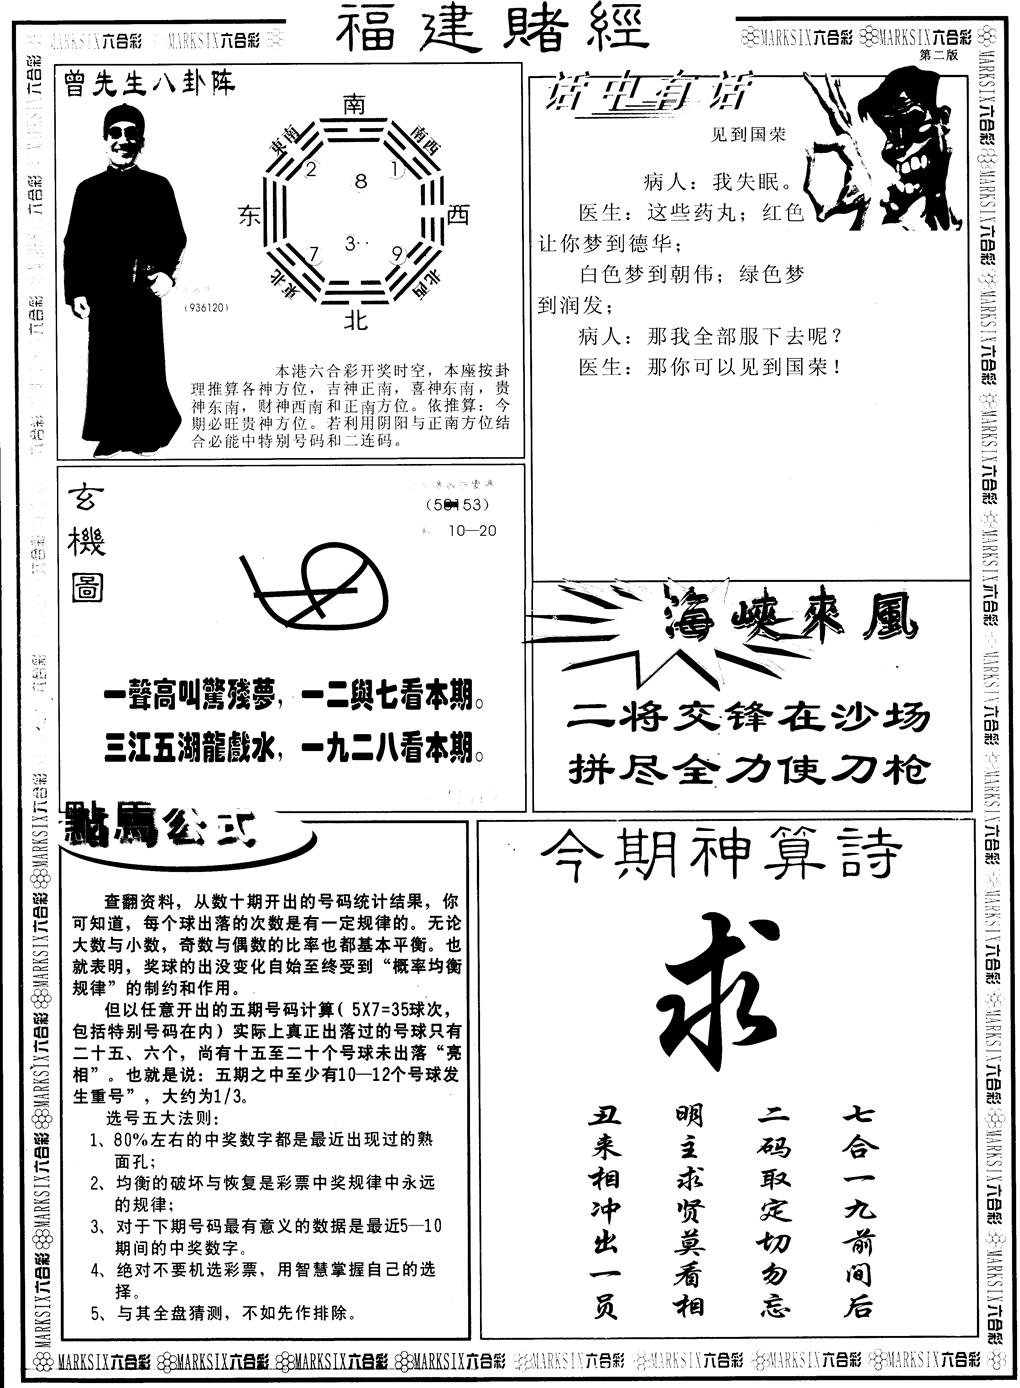 福建賭經
MARKSIX六合彩 MARKSIX六合彩
MARKSIX六合彩 MARKSIX六合彩
第二版
曾先生八卦阵
南
東南
南西
2
8
1
东
西
7
3
9
東北
北西
北
(936120)
本港六合彩开奖时空，本座按卦
理推算各神方位，吉神正南，喜神东南，贵
神东南，财神西南和正南方位。依推算：今
期必旺贵神方位。若利用阴阳与正南方位结
合必能中特别号码和二连码。
话中有话
见到国荣
病人：我失眠。
医生：这些药丸；红色
让你梦到德华；
白色梦到朝伟；绿色梦
到润发；
病人：那我全部服下去呢？
医生：那你可以见到国荣！
玄機圖
10—20
一聲高叫驚殘夢，一二與七看本期。
三江五湖龍戲水，一九二八看本期。
海峽來風
二将交锋在沙场
拼尽全力使刀枪
點馬公式
查翻资料，从数十期开出的号码统计结果，你
可知道，每个球出落的次数是有一定规律的。无论
大数与小数，奇数与偶数的比率也都基本平衡。也
就表明，奖球的出没变化自始至终受到“概率均衡
规律”的制约和作用。
但以任意开出的五期号码计算( 5X7=35球次，
包括特别号码在内) 实际上真正出落过的号球只有
二十五、六个，尚有十五至二十个号球未出落“亮
相”。也就是说：五期之中至少有10—12个号球发
生重号”，大约为1/3。
选号五大法则：
1、80%左右的中奖数字都是最近出现过的熟
面孔；
2、均衡的破坏与恢复是彩票中奖规律中永远
的规律；
3、对于下期号码最有意义的数据是最近5—10
期间的中奖数字。
4、绝对不要机选彩票，用智慧掌握自己的选
择。
5、与其全盘猜测，不如先作排除。
今期神算詩
求
七合一九前间后
二码取定切勿忘
明主求贤莫看相
丑来相冲出一员
MARKSIX六合彩 MARKSIX六合彩 MARKSIX六合彩 MARKSIX六合彩 MARKSIX六合彩 MARKSIX六合彩 MARKSIX六合彩 MARKSIX六合彩